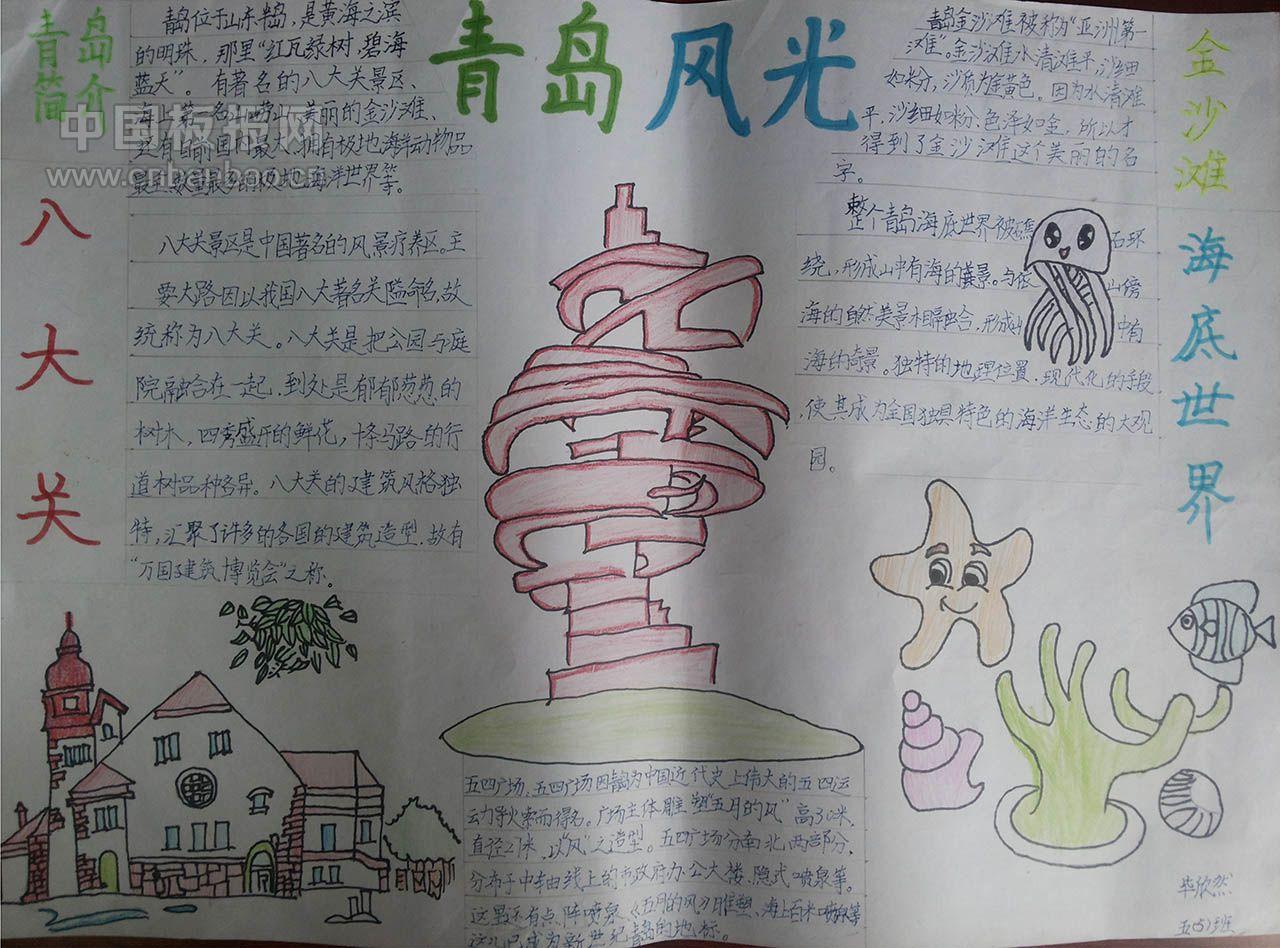 青岛风光
青岛
简介
青岛位于山东半岛，是黄海之滨
的明珠，那里“红瓦绿树，碧海
蓝天”。有著名的八大关景区、
海上第一名山崂山、美丽的金沙滩、
最
中国板报网
www.cnbanbao.cn
八
大
关
八大关景区是中国著名的风景疗养区。主
要大路因以我国八大著名关隘命名，故
统称为八大关。八大关是把公园与庭
院融合在一起，到处是郁郁葱葱的
树木，四季盛开的鲜花，十条马路的行
道树品种各异。八大关的建筑风格独
特，汇聚了许多的各国的建筑造型，故有
“万国建筑博览会”之称。
金
沙
滩
青岛金沙滩被称为“亚洲第一
滩”。金沙滩水清滩平，沙细
如粉，沙质为金黄色。因为水清滩
平，沙细如粉、色泽如金，所以才
得到了金沙滩这个美丽的名
字。
海
底
世
界
整个青岛海底世界被礁石环
绕，形成山中有海的奇景。与依山傍
海的自然美景相融合，形成山中有
海的奇景。独特的地理位置，现代化的手段，
使其成为全国独具特色的海洋生态的大观
园。
五四广场，五四广场因青岛为中国近代史上伟大的五四运
动导火索而得名。广场主体雕塑“五月的风”高30米，
直径27米，以“风”之造型。五四广场分南北两部分，
分布于中轴线上的市政府办公大楼、隐式喷泉等。
这里还有点阵喷泉、《五月的风》雕塑、海上百米喷泉等
这儿已成为新世纪青岛的地标。
毕欣然